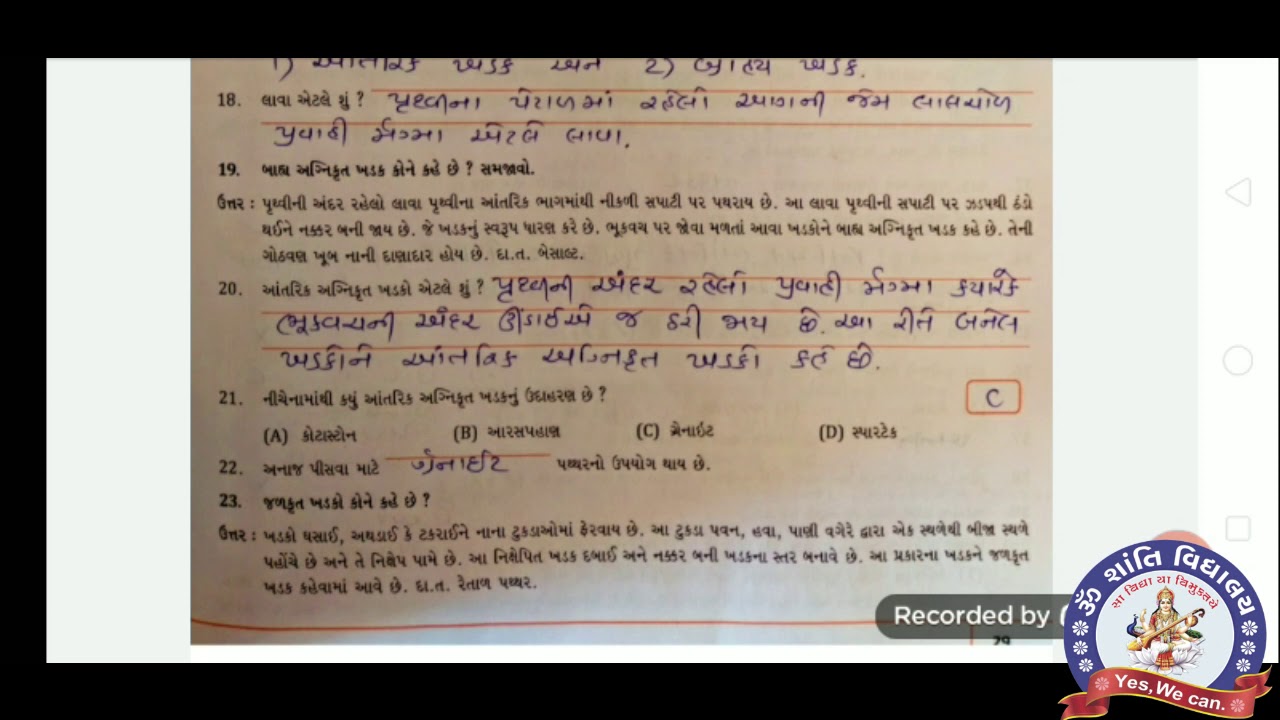 1) આંતરિક ખડક અને 2) બાહ્ય ખડક.
18. લાવા એટલે શું ? પૃથ્વીના પેટાળમાં રહેલો આગની જેમ લાલચોળ
પ્રવાહી મેગ્મા એટલે લાવા.
19. બાહ્ય અગ્નિકૃત ખડક કોને કહે છે ? સમજાવો.
ઉત્તર : પૃથ્વીની અંદર રહેલો લાવા પૃથ્વીના આંતરિક ભાગમાંથી નીકળી સપાટી પર પથરાય છે. આ લાવા પૃથ્વીની સપાટી પર ઝડપથી ઠંડો
થઈને નક્કર બની જાય છે. જે ખડકનું સ્વરૂપ ધારણ કરે છે. ભૂકવચ પર જોવા મળતાં આવા ખડકોને બાહ્ય અગ્નિકૃત ખડક કહે છે. તેની
ગોઠવણ ખૂબ નાની દાણાદાર હોય છે. દા.ત. બેસાલ્ટ.
20. આંતરિક અગ્નિકૃત ખડકો એટલે શું ? પૃથ્વીની અંદર રહેલો પ્રવાહી મેગ્મા ક્યારેક
ભૂકવચની અંદર ઊંડાઈએ જ ઠરી જાય છે. આ રીતે બનેલ
ખડકોને આંતરિક અગ્નિકૃત ખડકો કહે છે.
21. નીચેનામાંથી કયું આંતરિક અગ્નિકૃત ખડકનું ઉદાહરણ છે ? C
(A) કોટાસ્ટોન (B) આરસપહાણ (C) ગ્રેનાઇટ (D) સ્પારટેક
22. અનાજ પીસવા માટે ગ્રેનાઈટ પથ્થરનો ઉપયોગ થાય છે.
23. જળકૃત ખડકો કોને કહે છે ?
ઉત્તર : ખડકો ઘસાઈ, અથડાઈ કે ટકરાઈને નાના ટુકડાઓમાં ફેરવાય છે. આ ટુકડા પવન, હવા, પાણી વગેરે દ્વારા એક સ્થળેથી બીજા સ્થળે
પહોંચે છે અને તે નિક્ષેપ પામે છે. આ નિક્ષેપિત ખડક દબાઈ અને નક્કર બની ખડકના સ્તર બનાવે છે. આ પ્રકારના ખડકને જળકૃત
ખડક કહેવામાં આવે છે. દા.ત. રેતાળ પથ્થર.
Recorded by
29
ૐ શાંતિ વિદ્યાલય
સા વિદ્યા યા વિમુક્તયે
Yes, We can.